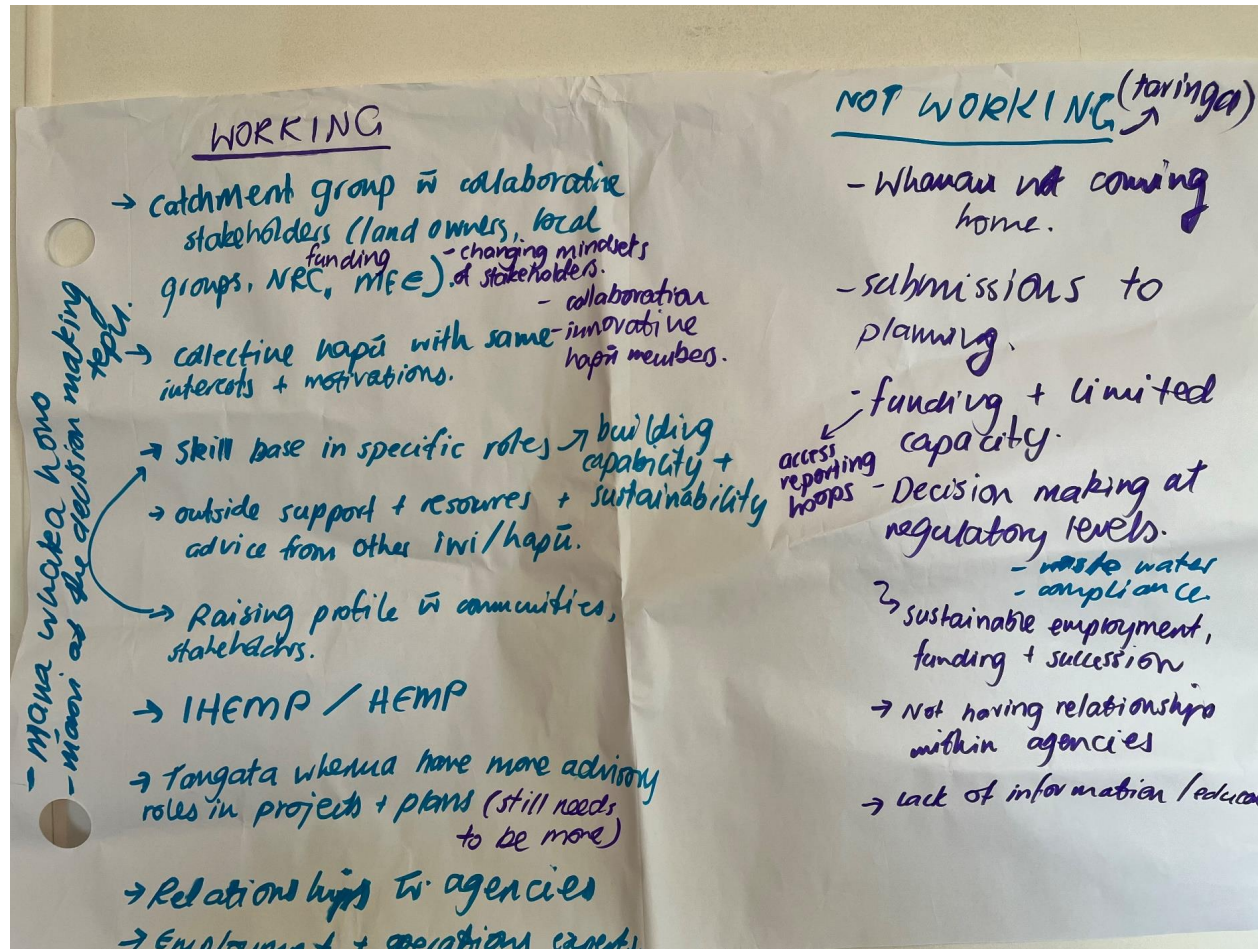 WORKING
→ catchment group w̄ collaborative
stakeholders (land owners, local
funding
groups, NRC, MfE).
- changing mindsets
of stakeholders.
- collaboration
- innovative
hapū members.
→ collective hapū with same
interests + motivations.
→ Skill base in specific roles → building
capability +
sustainability
→ outside support + resources +
advice from other iwi/hapū.
→ Raising profile w̄ communities,
stakeholders.
→ IHEMP / HEMP
→ Tangata whenua have more advisory
roles in projects + plans (still needs
to be more)
→ Relationships w̄ agencies
→ Employment + operations experts
- Mana whaka hono
- maori at the decision making
tepū.
NOT WORKING (taringa)
- Whanau not coming
home.
- submissions to
planning.
- funding + limited
capacity.
access
reporting
hoops
- Decision making at
regulatory levels.
- waste water
- compliance.
sustainable employment,
funding + succession
→ Not having relationships
within agencies
→ Lack of information /educa